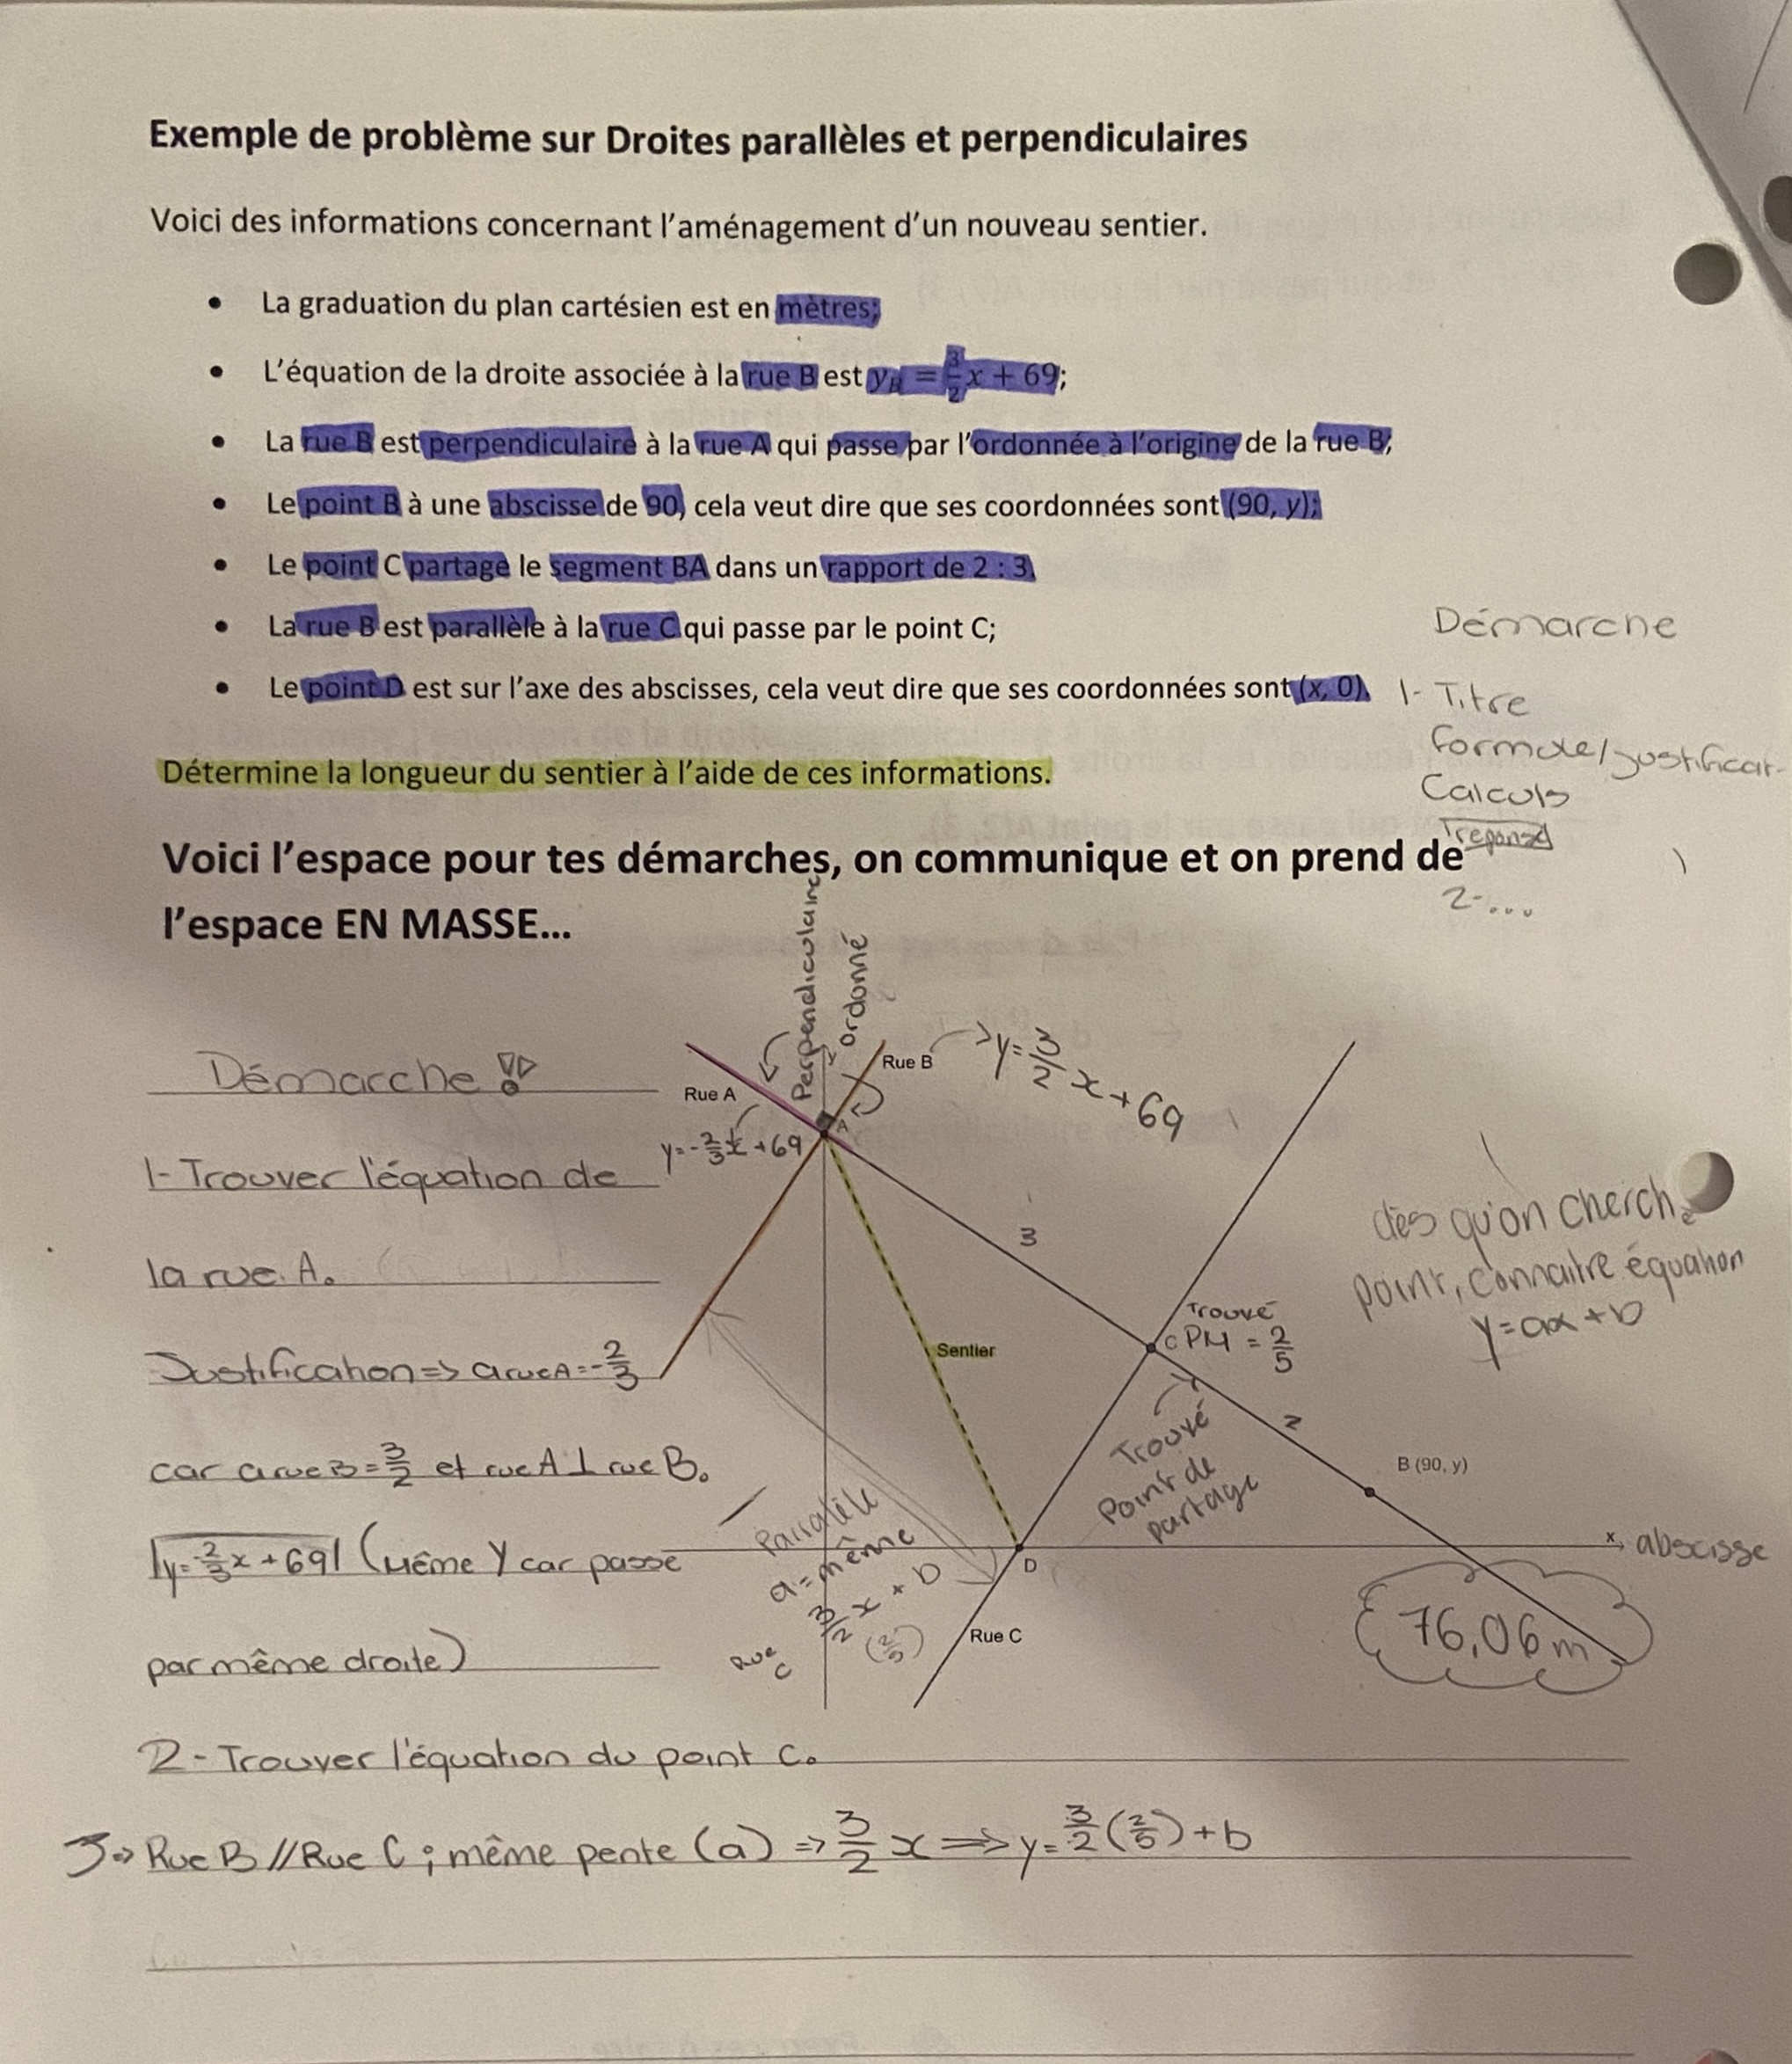 Exemple de problème sur Droites parallèles et perpendiculaires
Voici des informations concernant l'aménagement d'un nouveau sentier.
• La graduation du plan cartésien est en mètres;
• L'équation de la droite associée à la rue B est y_B = 3/2 x + 69;
• La rue B est perpendiculaire à la rue A qui passe par l'ordonnée à l'origine de la rue B;
• Le point B à une abscisse de 90, cela veut dire que ses coordonnées sont (90, y);
• Le point C partage le segment BA dans un rapport de 2 : 3.
• La rue B est parallèle à la rue C qui passe par le point C;
• Le point D est sur l'axe des abscisses, cela veut dire que ses coordonnées sont (x, 0).
Démarche
1- Titre
formule/justificat-
Calculs
réponse
2-...
Détermine la longueur du sentier à l'aide de ces informations.
Voici l'espace pour tes démarches, on communique et on prend de
l'espace EN MASSE...
Perpendiculaire
ordonné
Démarche !
Rue A
Rue B
y= 3/2 x + 69
y=-2/3 x +69
A
1- Trouver l'équation de
la rue A.
3
dès qu'on cherche
point, connaitre équation
y=ax+b
Trouvé
C PM = 2/5
Sentier
Justification => a rue A = -2/3
2
Trouvé
Point de
partage
B (90, y)
car a rue B = 3/2 et rue A ⊥ rue B.
Parralèle
a = même
3/2 x + b
(2/5)
Rue
C
y=-2/3 x + 69 (même y car passe
par même droite)
x
abscisse
D
Rue C
76,06 m
2- Trouver l'équation du point C.
3=> Rue B // Rue C ; même pente (a) => 3/2 x => y= 3/2 (2/5) + b